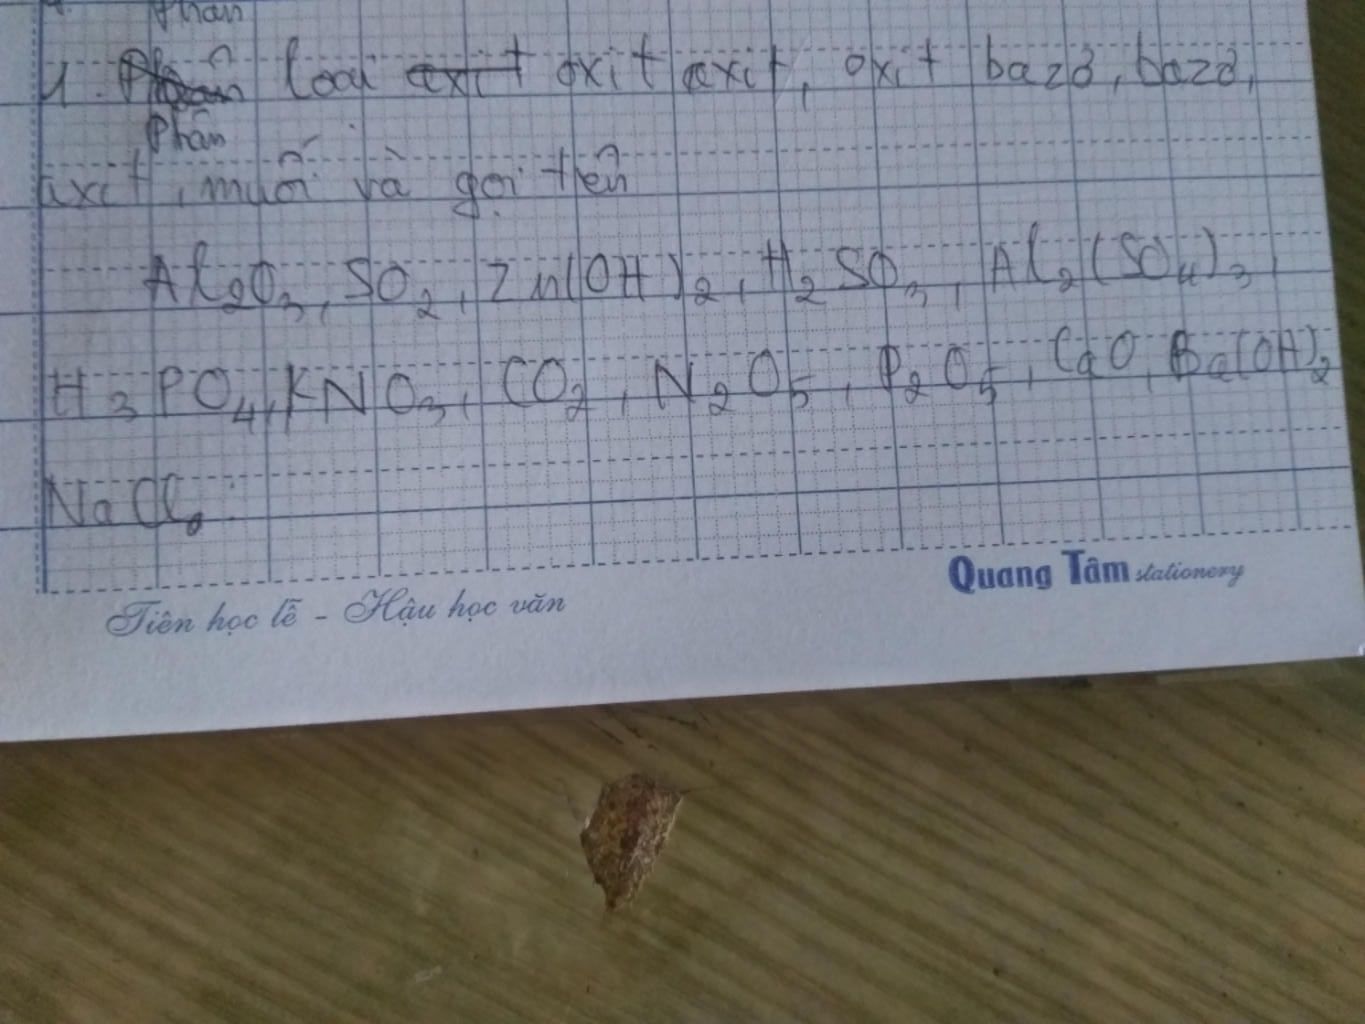 Phân
1. loại oxit axit, oxit bazơ, bazơ,
Phân
axit, muối và gọi tên
Al2O3, SO2, Zn(OH)2, H2SO3, Al2(SO4)3
H3PO4, KNO3, CO2, N2O5, P2O5, CaO, Ba(OH)2
NaCl
Quang Tâm stationery
Tiên học lễ - Hậu học văn